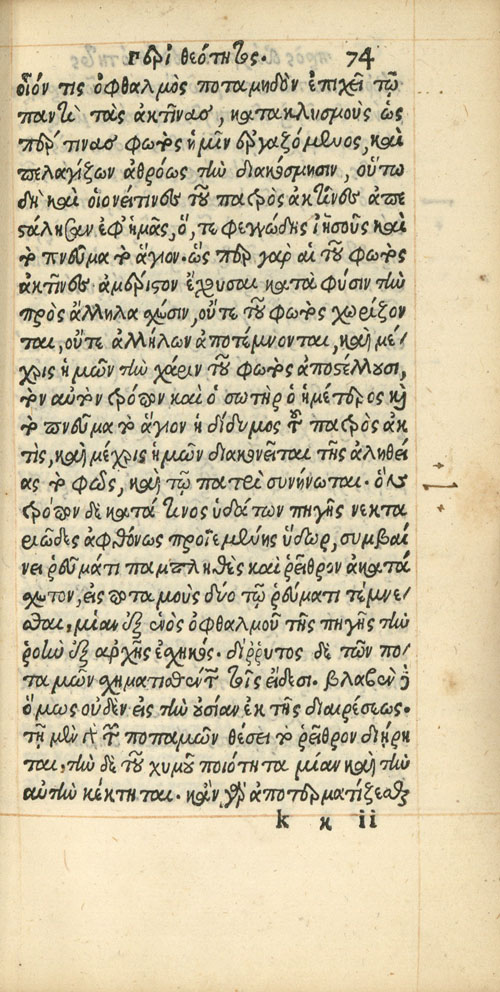 περὶ θεότητος. 74
οἷόν τις ὀφθαλμὸς ποταμηδὸν ἐπιχεῖ τῷ
παντὶ τὰς ἀκτῖνας, κατακλυσμοὺς ὥς
πέρ τινας φωτὸς ἡμῖν ἐργαζόμενος, καὶ
πελαγίζων ἀθρόως τὴν διακόσμησιν, οὕτω
δὴ καὶ οἱονείτινες τοῦ πατρὸς ἀκτῖνες ἀπε
στάλησαν ἐφ' ἡμᾶς, ὅ, τε φεγγώδης ἰησοῦς καὶ
τὸ πνεῦμα τὸ ἅγιον. ὥς περ γὰρ αἱ τοῦ φωτὸς
ἀκτῖνες ἀμέριστον ἔχουσαι κατὰ φύσιν τὴν
πρὸς ἄλληλα σχέσιν, οὔτε τοῦ φωτὸς χωρίζον
ται, οὔτε ἀλλήλων ἀποτέμνονται, καὶ μέ/
χρις ἡμῶν τὴν χάριν τοῦ φωτὸς ἀποστέλλουσι,
τὸν αὐτὸν τρόπον καὶ ὁ σωτὴρ ὁ ἡμέτερος καὶ
τὸ πνεῦμα τὸ ἅγιον ἡ δίδυμος τοῦ πατρὸς ἀκ
τὶς, καὶ μέχρις ἡμῶν διακονεῖται τῆς ἀληθεί
ας τὸ φῶς, καὶ τῷ πατρὶ συνήνωται. ὃν
τρόπον δὲ κατά τινος ὑδάτων πηγῆς νεκτα
ριῶδες ἀφθόνως προϊεμένης ὕδωρ, συμβαί
νει ῥεύματι παμπληθὲς καὶ ῥεῖθρον ἀκατά
σχετον, εἰς ποταμοὺς δύο τῷ ῥεύματι τέμνε/
σθαι, μίαν ἐξ ἑνὸς ὀφθαλμοῦ τῆς πηγῆς τὴν
ῥοὴν ἐξ ἀρχῆς ἐσχηκός. δίρρυτος δὲ τῶν πο/
ταμῶν σχηματισθὲν τοῖς εἴδεσι. βλαβὲν
ὅμως οὐδὲν εἰς τὴν οὐσίαν ἐκ τῆς διαιρέσεως.
τῇ μὲν γὰρ τῶν ποπαμῶν θέσει τὸ ῥεῖθρον διῄρη
ται, τὴν δὲ τοῦ χυμοῦ ποιότητα μίαν καὶ τὴν
αὐτὴν κέκτηται. κἂν γὰρ ἀποτερματίζεσθ
k κ ii